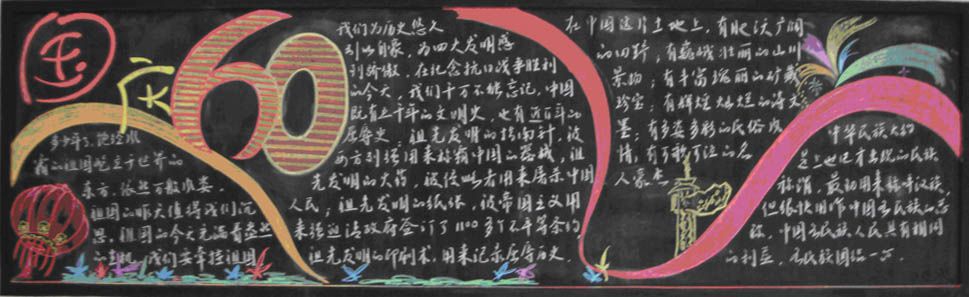 国庆
60
岁年了，饱经风
霜的祖国屹立于世界的
东方，依然万般难姿。
祖国的昨天值得我们沉
思，祖国的今天充满着
的生机，我们要掌握祖国
我们为历史悠久
引以自豪，为四大发明感
到骄傲，在纪念抗日战争胜利
的今天，我们千万不能忘记，中国
既有五千年的文明史，也有近百年的
屈辱史，祖先发明的指南针，被
西方列强用来掠夺中国的器械，祖
先发明的火药，被侵略者用来屠杀中国
人民；祖先发明的纸张，被帝国主义用
来强迫清政府签订了1100多个不平等条约
祖先发明的印刷术，用来记录屈辱历史。
在中国这片土地上，有肥沃广阔
的田野；有巍峨壮丽的山川
景物；有丰富瑰丽的矿藏
珍宝；有辉煌灿烂的诗文
墨；有多姿多彩的民俗风
情，有可歌可泣的名
人豪杰
中华民族大约
是上世纪才出现的民族
称谓，最初用来称呼汉族，
但很快用作中国各民族的总
称，中国各民族人民具有相同
的利益，各民族团结一心。